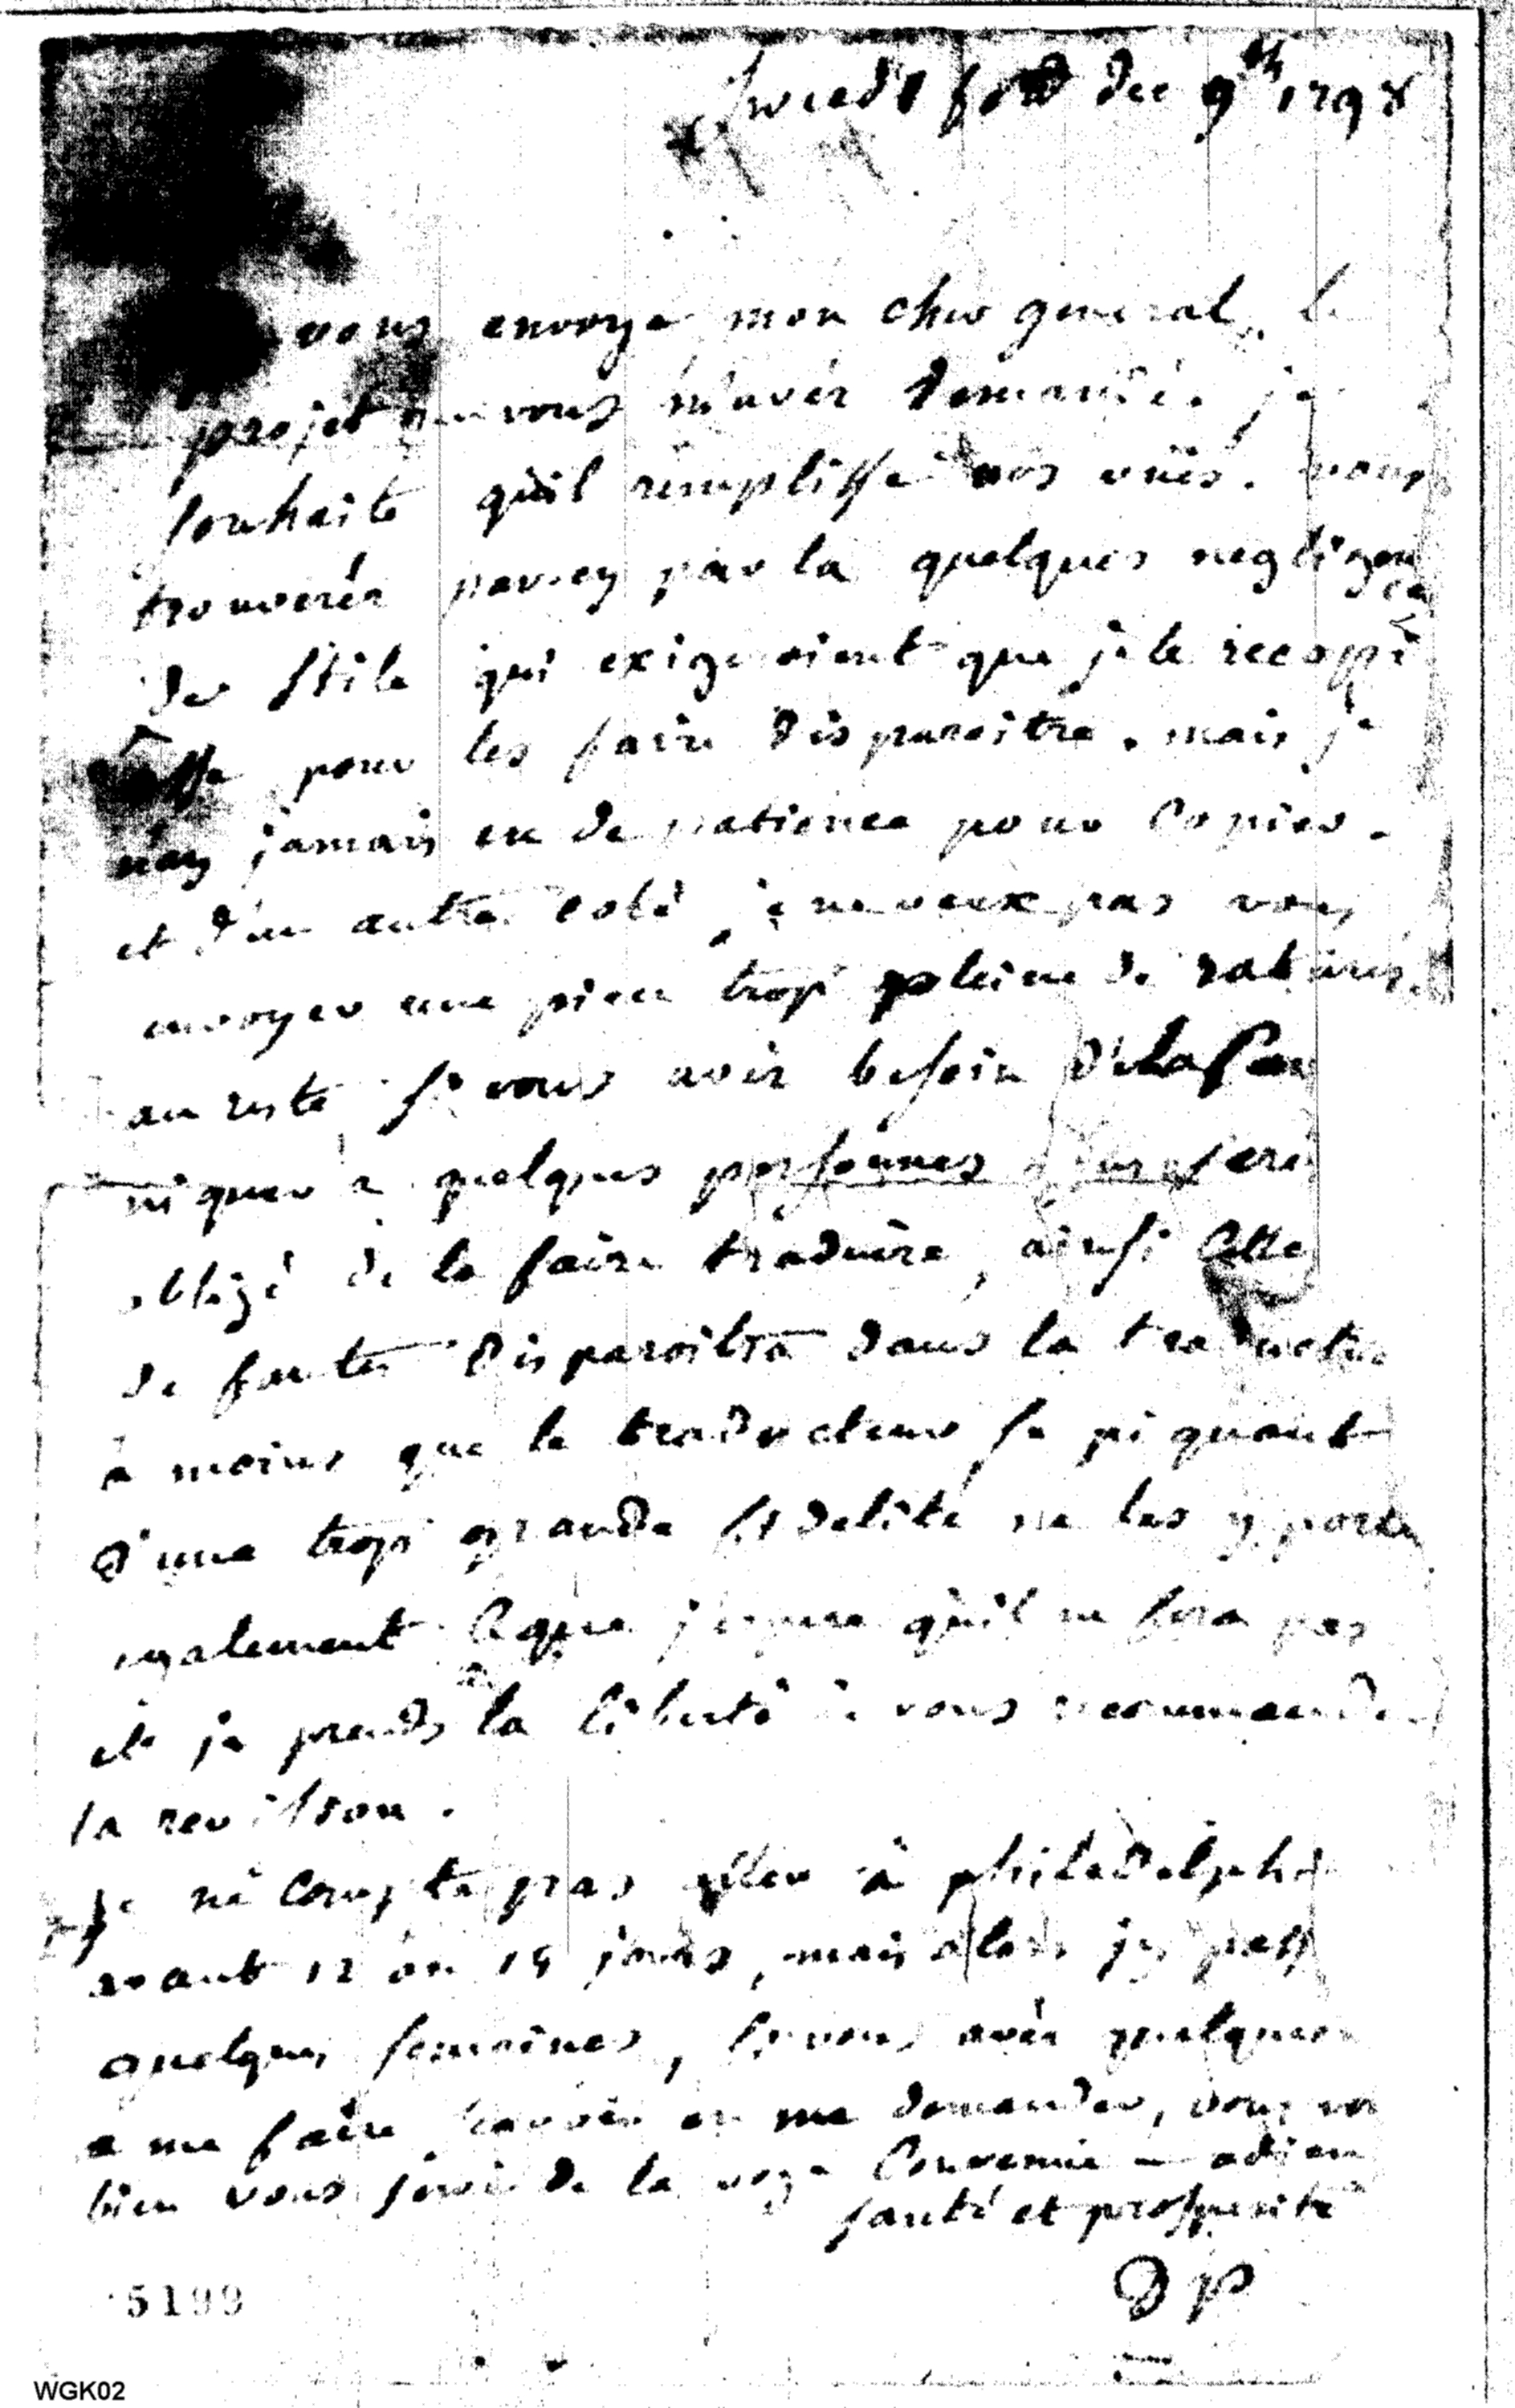 Sweeds ford dec 9th 1798
vous envoye mon cher general, le
projet que vous m'avéz demandé. je
souhaite qu'il remplisse vos vües. vous
trouveréz par-cy par la quelques negligen
ces
de stile qui exigeroient que je le recopi
asse pour les faire disparoitre. mais je
n'ay jamais eu de patience pour copier.
et d'un autre coté, je ne veux pas vous
envoyer une piece trop pleine de ratures.
au reste si vous avéz besoin de la com
niquer a quelques personnes
obligé de la faire traduire, ainsi
de fautes disparoitra dans la traduction
à moins que le traducteur se piquant
d'une trop grande fidelité ne les y porte
egalement ce que j'espere qu'il ne fera pas
et je prends la liberté de vous recommander
la revision.
je ne compte pas aller à philadelphie
avant 12 ou 15 jours, mais alors j'y pass
quelques semaines, si vous avéz quelque
a me faire savoir ou me demander,
bien vous servir de la voye convenue - adieu
santé et prosperité
DP
5199
WGK02